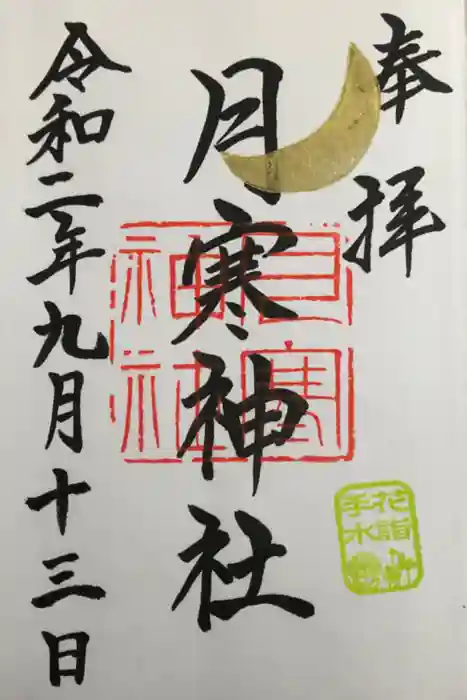 奉拝
月寒神社
月寒神社
花詣
手水
令和二年九月十三日